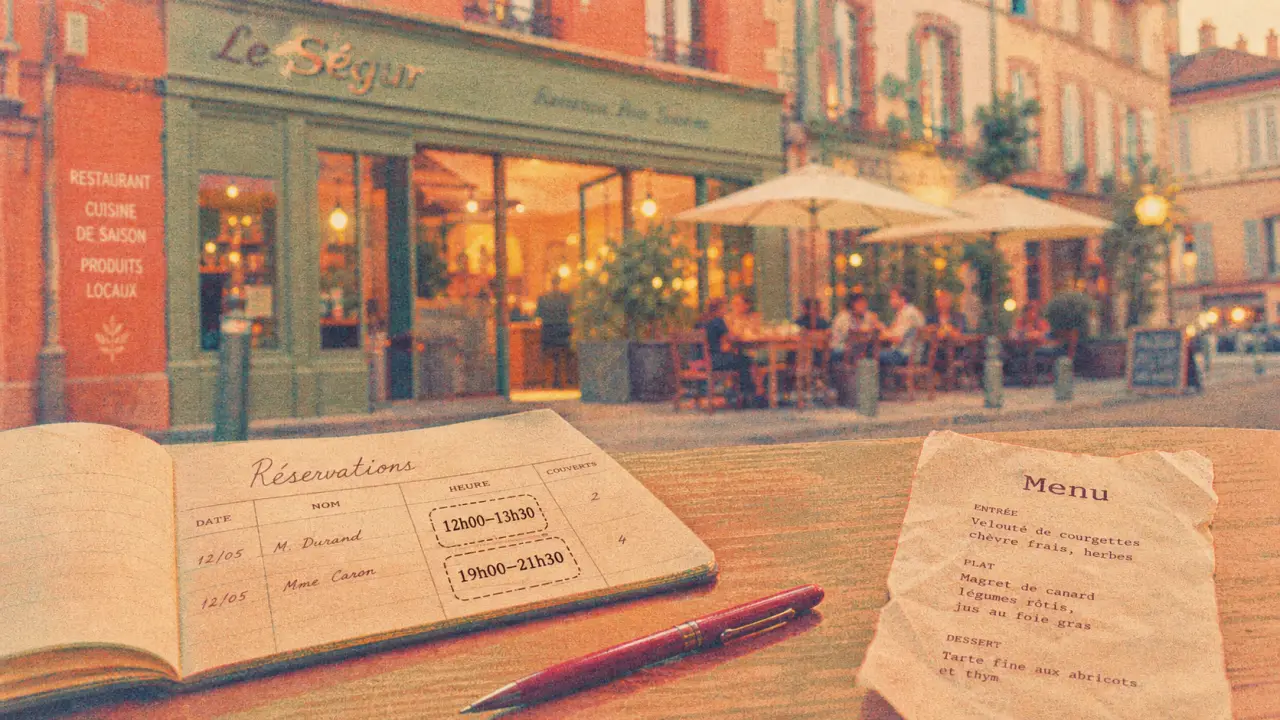 Le Ségur
RESTAURANT
CUISINE
DE SAISON
PRODUITS
LOCAUX
Réservations
DATE NOM HEURE COUVERTS
12/05 M. Durand 12h00–13h30 2
12/05 Mme Caron 19h00–21h30 4
Menu
ENTRÉE
Velouté de courgettes
chèvre frais, herbes
PLAT
Magret de canard
légumes rôtis,
jus au foie gras
DESSERT
Tarte fine aux abricots
et thym